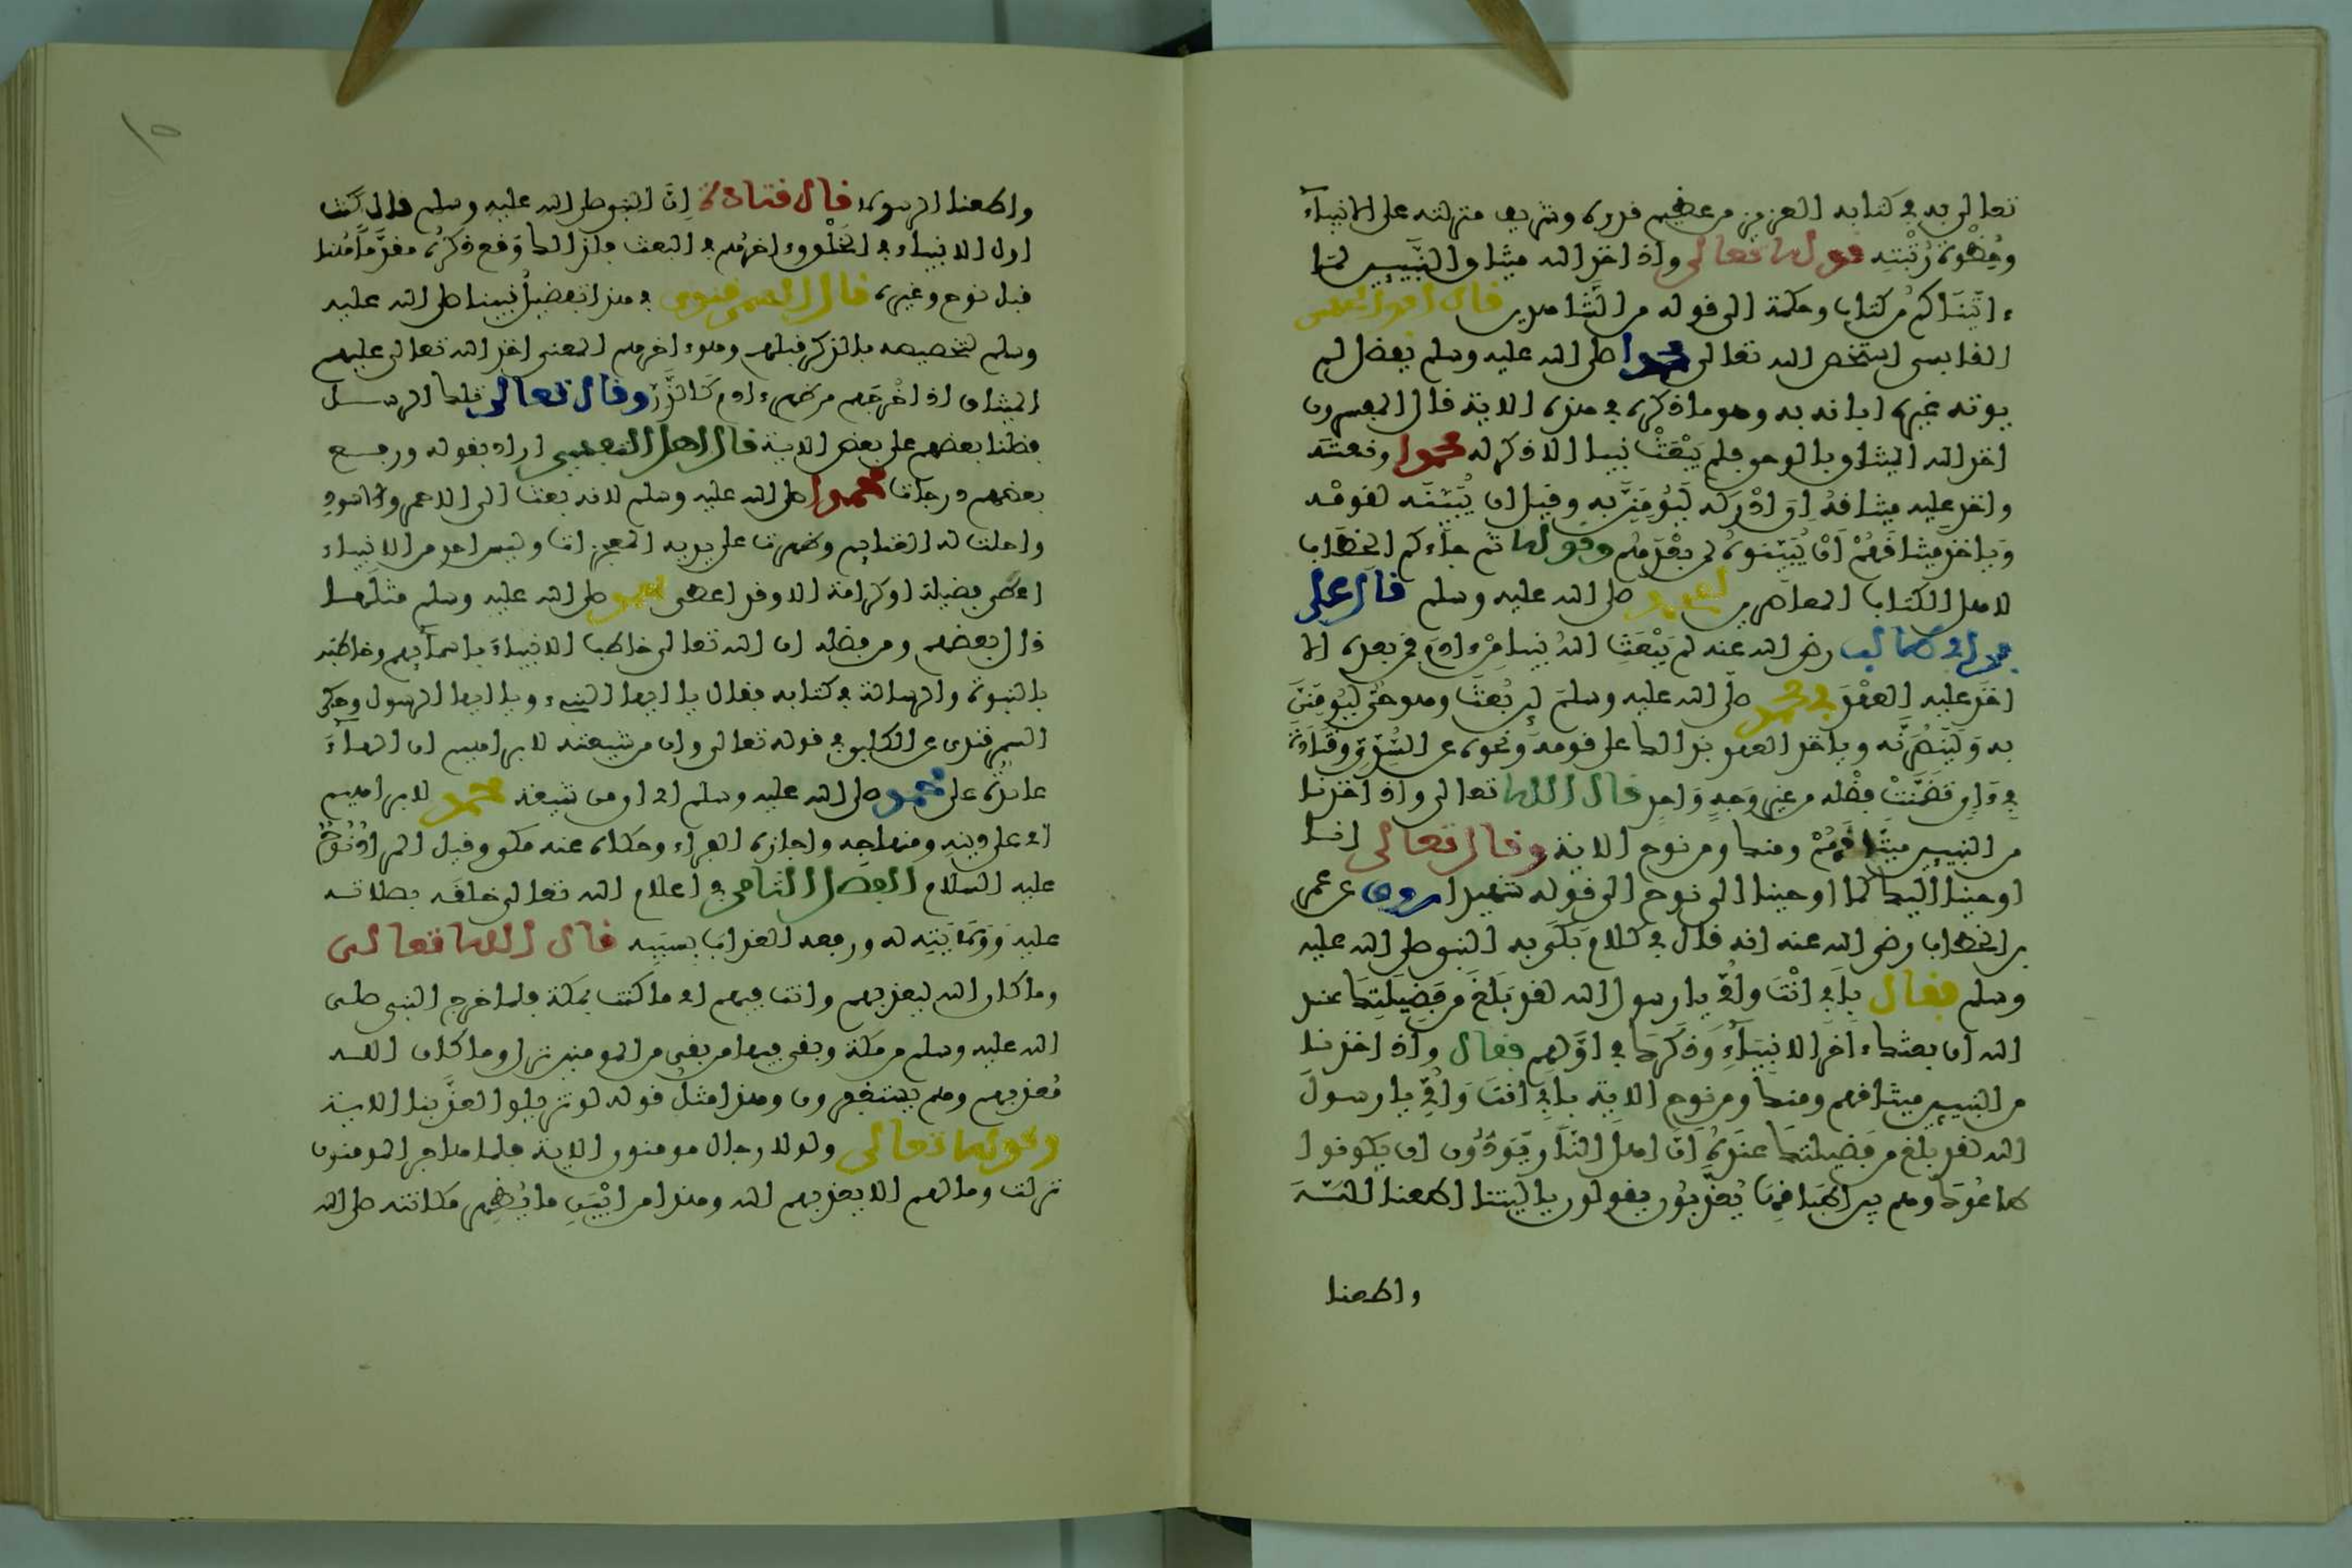 تعالى به في كتابه العزيز من عظيم قدره وشريف منزلته على الانبياء
وحظوة رتبته قوله تعالى واذ اخذ الله ميثاق النبيين لما
ءاتيناكم من كتاب وحكمة الى قوله من الشاهدين قال ابو الحسن
القابسي استخص الله تعالى محمدا صلى الله عليه وسلم بفضل لم
يوته غيره ابانه به وهو ما ذكره في هذه الاية قال المفسرون
اخذ الله الميثاق بالوحي فلم يبعث نبيا الا ذكر له محمدا ونعته
واخذ عليه ميثاقه ان ادركه ليؤمنن به وقيل ان يبينه لقومه
وياخذ ميثاقهم ان يبينوه لمن بعدهم وقوله ثم جاءكم الخطاب
لاهل الكتاب المعاصرين لمحمد صلى الله عليه وسلم قال علي
بن ابي طالب رضي الله عنه لم يبعث الله نبيا من ءادم فمن بعده الا
اخذ عليه العهد في محمد صلى الله عليه وسلم لئن بعث وهو حي ليؤمنن
به ولينصرنه وياخذ العهد بذالك على قومه ونحوه عن السدي وقتادة
في ءاي تضمنت فضله من غير وجه واحد قال الله تعالى واذ اخذنا
من النبيين ميثاقهم ومنك ومن نوح الاية وقال تعالى انا
اوحينا اليك كما اوحينا الى نوح الى قوله شهيدا روي عن عمر
بن الخطاب رضي الله عنه انه قال في كلام بكى به النبي صلى الله عليه
وسلم فقال بابي انت وامي يا رسول الله لقد بلغ من فضيلتك عند
الله ان بعثك ءاخر الانبياء وذكرك في اولهم فقال واذ اخذنا
من النبيين ميثاقهم ومنك ومن نوح الاية بابي انت وامي يا رسول
الله لقد بلغ من فضيلتك عنده ان اهل النار يودون ان يكونوا
اطاعوك وهم بين اطباقها يعذبون يقولون يا ليتنا اطعنا الله
واطعنا
١٥
واطعنا الرسولا قال قتادة ان النبي صلى الله عليه وسلم قال كنت
اول الانبياء في الخلق وءاخرهم في البعث فلذالك وقع ذكره مقدما هنا
قبل نوح وغيره قال السمرقندي في هذا تفضيل نبينا صلى الله عليه
وسلم لتخصيصه بالذكر قبلهم وهو ءاخرهم المعنى اخذ الله تعالى عليهم
الميثاق اذ اخرجهم من ظهر ءادم كالذر وقال تعالى تلك الرسل
فضلنا بعضهم على بعض الاية قال اهل التفسير اراد بقوله ورفع
بعضهم درجات محمدا صلى الله عليه وسلم لانه بعث الى الاحمر والاسود
واحلت له الغنايم وظهرت على يديه المعجزات وليس احد من الانبياء
اعطي فضيلة او كرامة الا وقد اعطي محمد صلى الله عليه وسلم مثلها
قال بعضهم ومن فضله ان الله تعالى خاطب الانبياء باسمائهم وخاطبه
بالنبوة والرسالة في كتابه فقال يا ايها النبيء ويا ايها الرسول وحكى
السمرقندي عن الكلبي في قوله تعالى وان من شيعته لابراهيم ان الهاء
عايدة على محمد صلى الله عليه وسلم اي ان من شيعة محمد لابراهيم
اي على دينه ومنهاجه واجازه الفراء وحكاه عنه مكي وقيل المراد نوح
عليه السلام الفصل الثامن في اعلام الله تعالى خلقه بصلاته
عليه وولايته له ورفعه العذاب بسببه قال الله تعالى
وما كان الله ليعذبهم وانت فيهم اي ما كنت بمكة فلما خرج النبي صلى
الله عليه وسلم من مكة وبقي فيها من بقي من المومنين نزل وما كان الله
معذبهم وهم يستغفرون وهذا مثل قوله لو تزيلوا لعذبنا الاية
وقوله تعالى ولولا رجال مومنون الاية فلما هاجر المومنون
نزلت وما لهم الا يعذبهم الله وهذا من ابين ما يظهر مكانته صلى الله